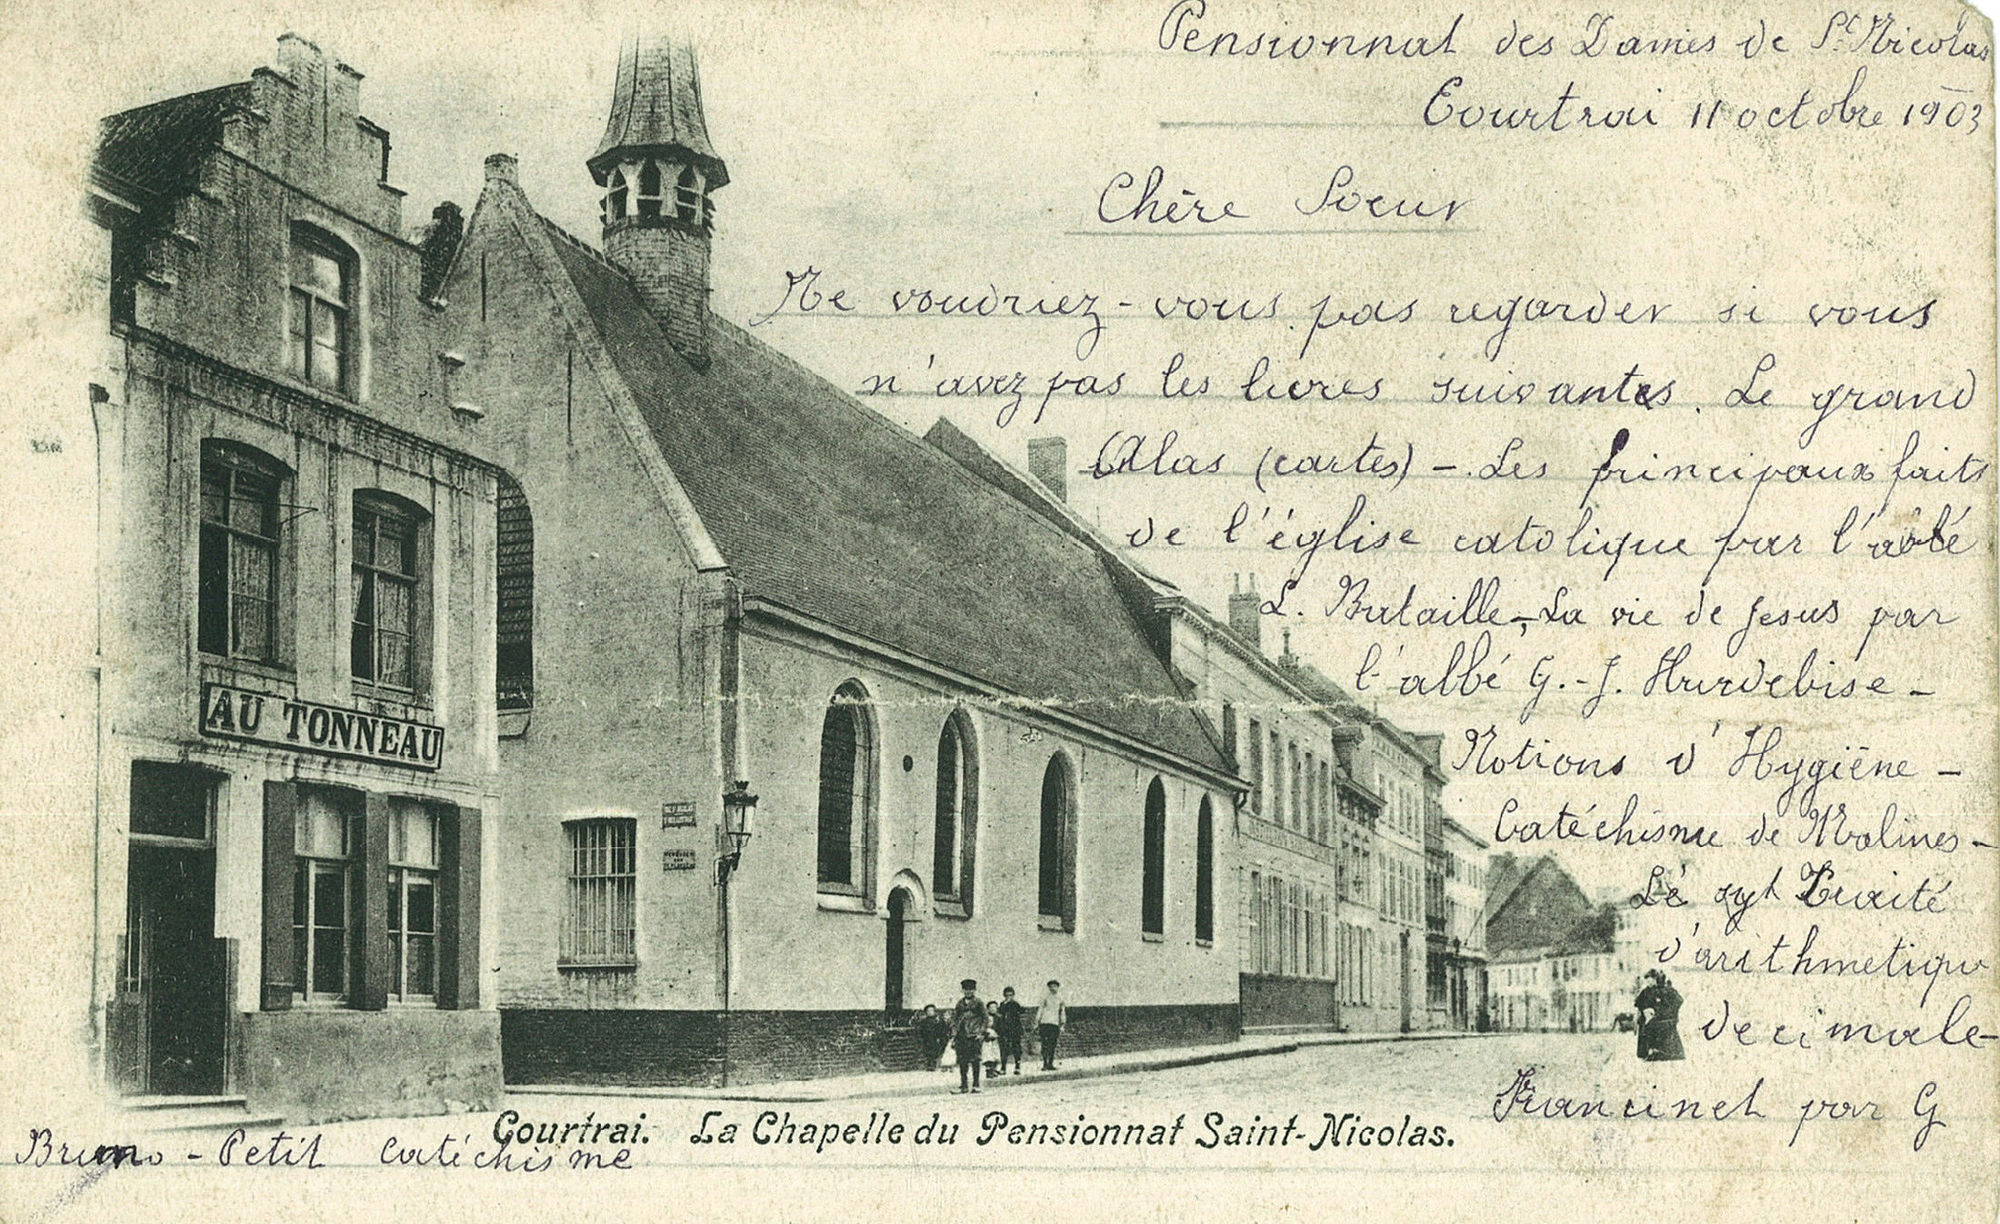 Pensionnat des Dames de St Nicolas
Courtrai 11 octobre 1903
Chère Soeur
Ne voudriez-vous pas regarder si vous
n'avez pas les livres suivantes. Le grand
Atlas (cartes) - Les principaux faits
de l'église catolique par l'abbé
L. Bataille - La vie de Jesus par
l'abbé G.-J. Hurdebise -
Notions d'Hygiène -
Catéchisme de Malines -
Traité
d'arithmetique
decimale -
Francinet par G
Bruno - Petit catéchisme
AU TONNEAU
Courtrai. La Chapelle du Pensionnat Saint-Nicolas.